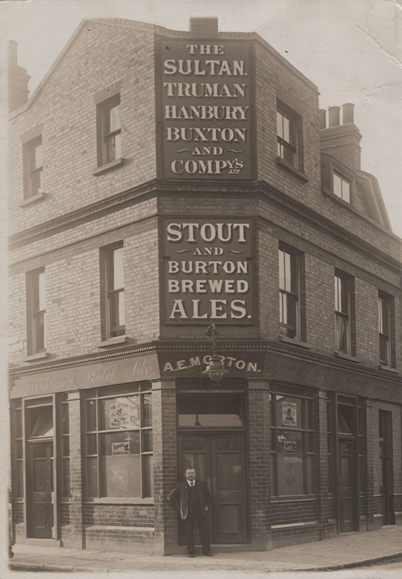 THE
SULTAN.
TRUMAN
HANBURY
BUXTON
AND
COMPYS
LTD
STOUT
AND
BURTON
BREWED
ALES.
A.E. MORTON.